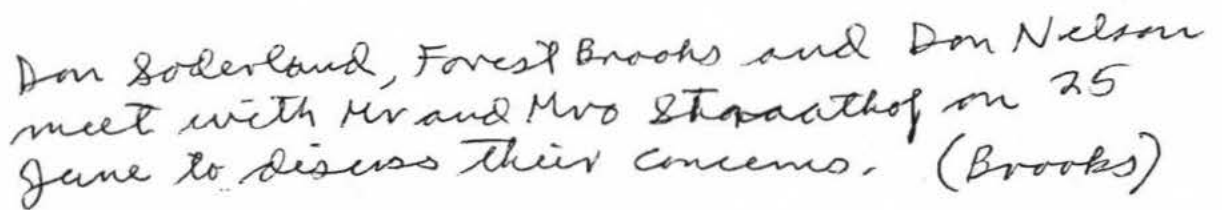 Don Soderland, Forest Brooks and Don Nelson
meet with Mr and Mrs on 25
June to discuss their concerns. (Brooks)